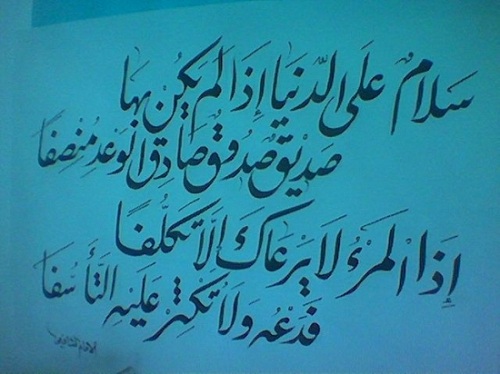 سَلَامٌ عَلَى الدُّنْيَا إِذَا لَمْ يَكُنْ بِهَا
صَدِيقٌ صَدُوقٌ صَادِقُ الْوَعْدِ مُنْصِفَا
إِذَا الْمَرْءُ لَا يَرْعَاكَ إِلَّا تَكَلُّفًا
فَدَعْهُ وَلَا تُكْثِرْ عَلَيْهِ التَّأَسُّفَا
الامام الشافعي